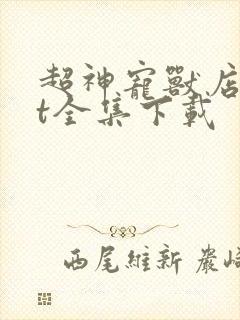 超神寵獸店
t全集下載
西尾維新 巖崎